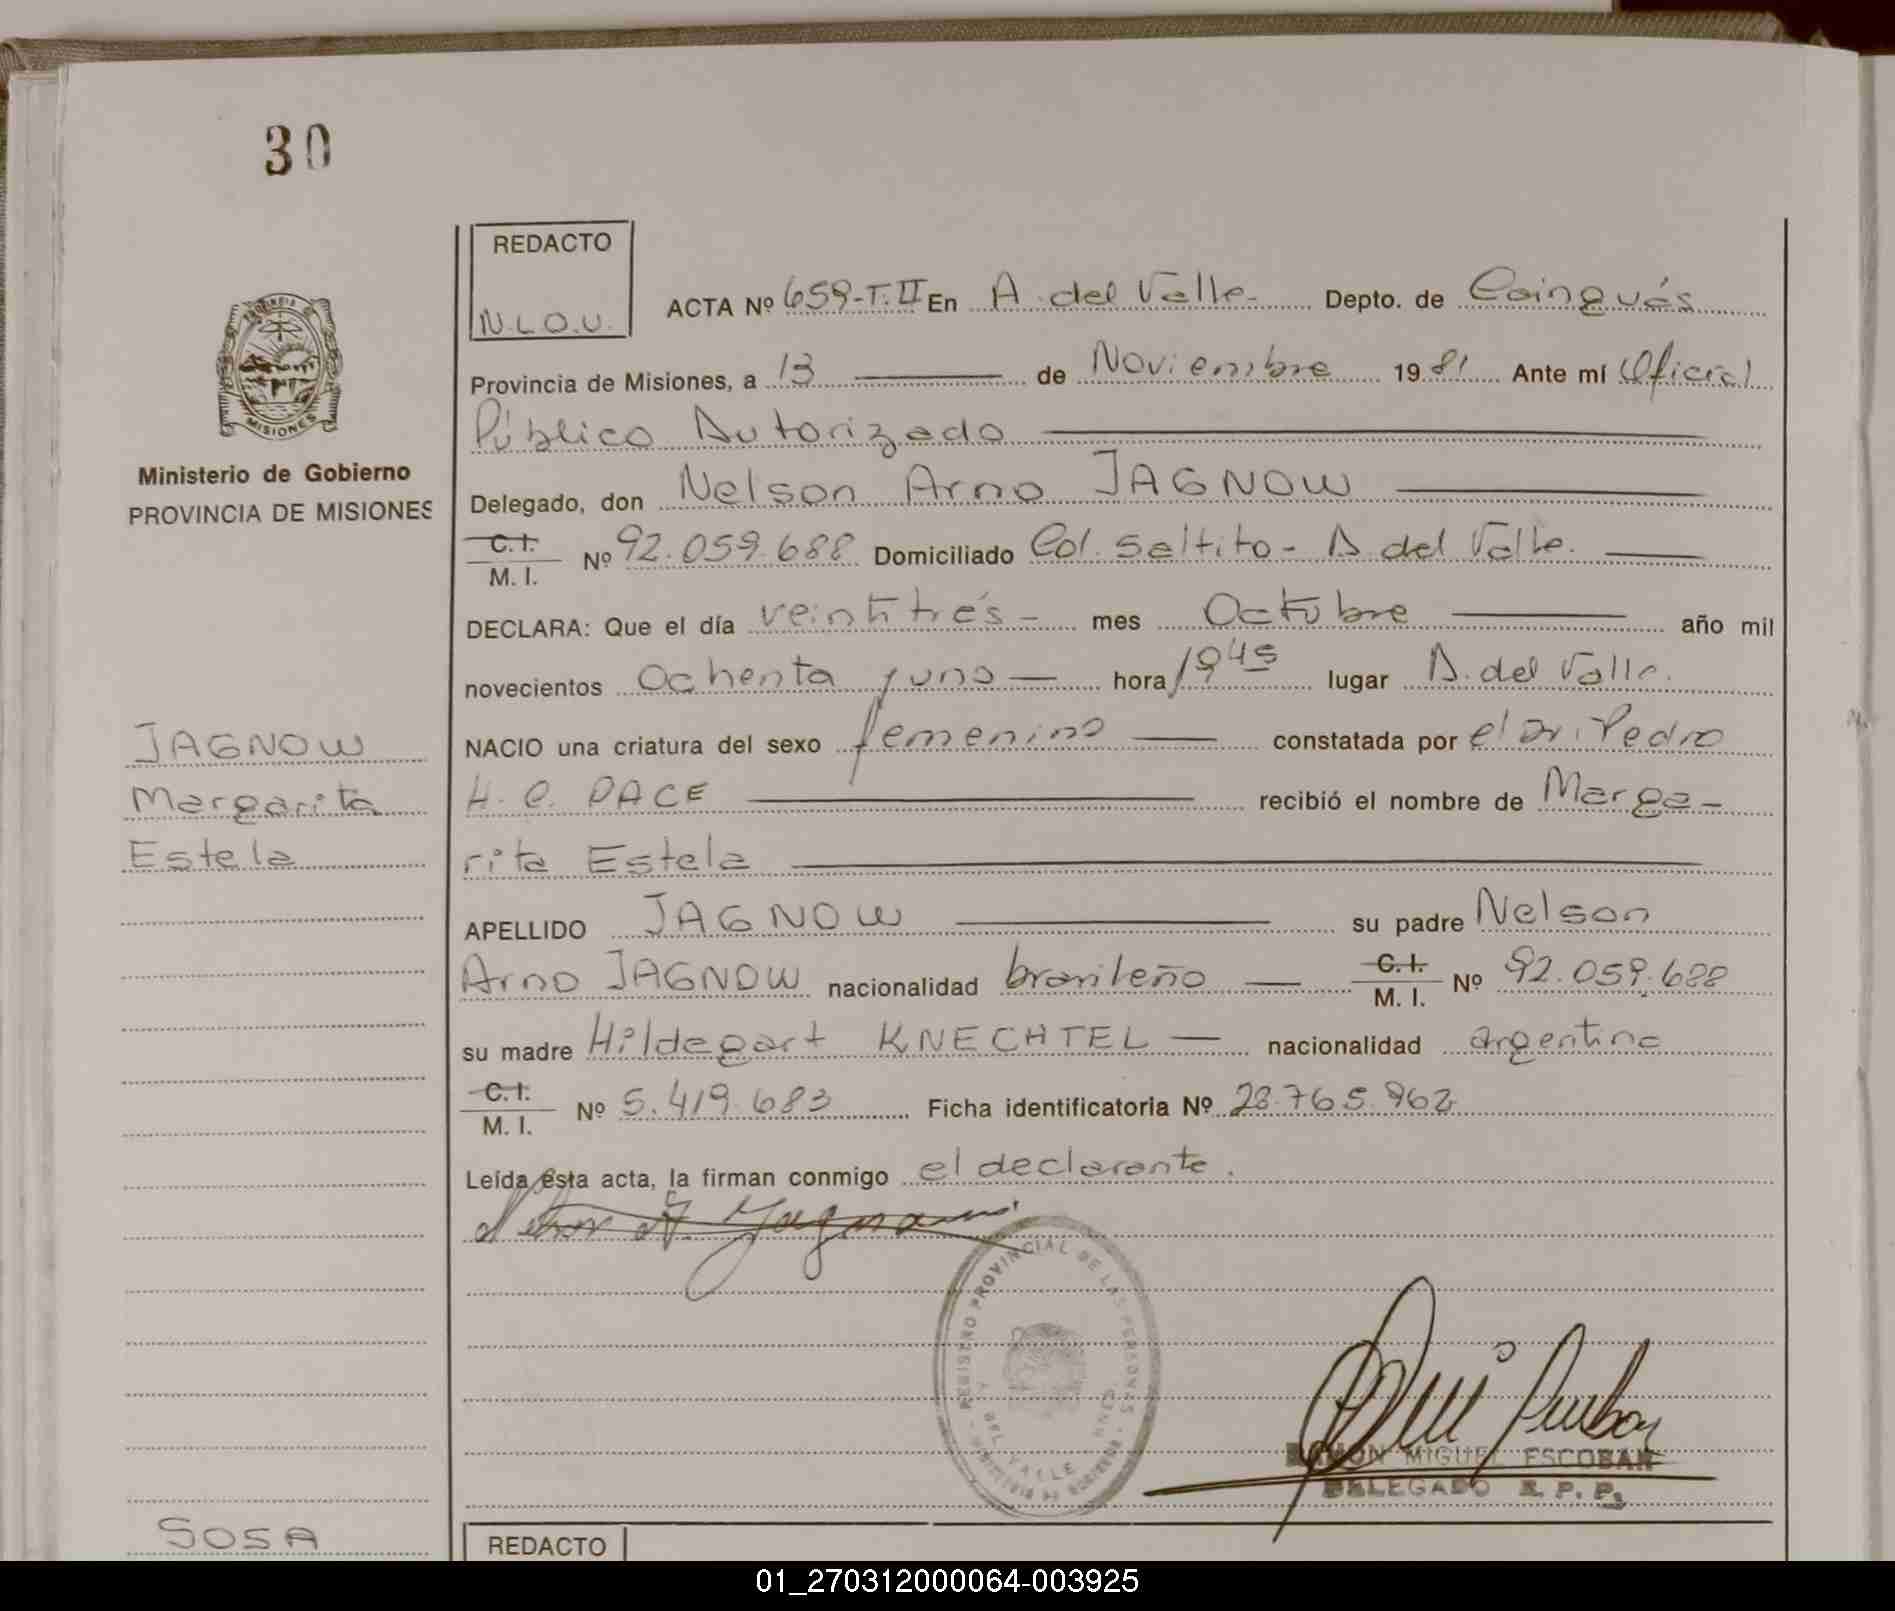 30
REDACTO
N.L.O.U.
ACTA Nº 659-T.II En A. del Valle. Depto. de Cainguás
Provincia de Misiones, a 13 de Noviembre 1981 Ante mí Oficial
Público Autorizado
MISIONES
Ministerio de Gobierno
PROVINCIA DE MISIONES
Delegado, don Nelson Arno JAGNOW
C.I. M.I. Nº 92.059.688 Domiciliado Col. Saltito - A. del Valle.
DECLARA: Que el día veintitrés - mes Octubre año mil
novecientos ochenta y uno hora 19 45 lugar A. del Valle.
NACIO una criatura del sexo femenino constatada por el Dr. Pedro
H. C. PACE recibió el nombre de Marga-
rita Estela
JAGNOW
Margarita
Estela
APELLIDO JAGNOW su padre Nelson
Arno JAGNOW nacionalidad brasileño C.I. M.I. Nº 92.059.688
su madre Hildegart KNECHTEL nacionalidad argentina
C.I. M.I. Nº 5.419.683 Ficha identificatoria Nº 28.765.962
Leída esta acta, la firman conmigo el declarante.
REGISTRO PROVINCIAL DE LAS PERSONAS
DEL VALLE
RAMON MIGUEL ESCOBAR
DELEGADO R. P. P.
SOSA
REDACTO
01_270312000064-003925